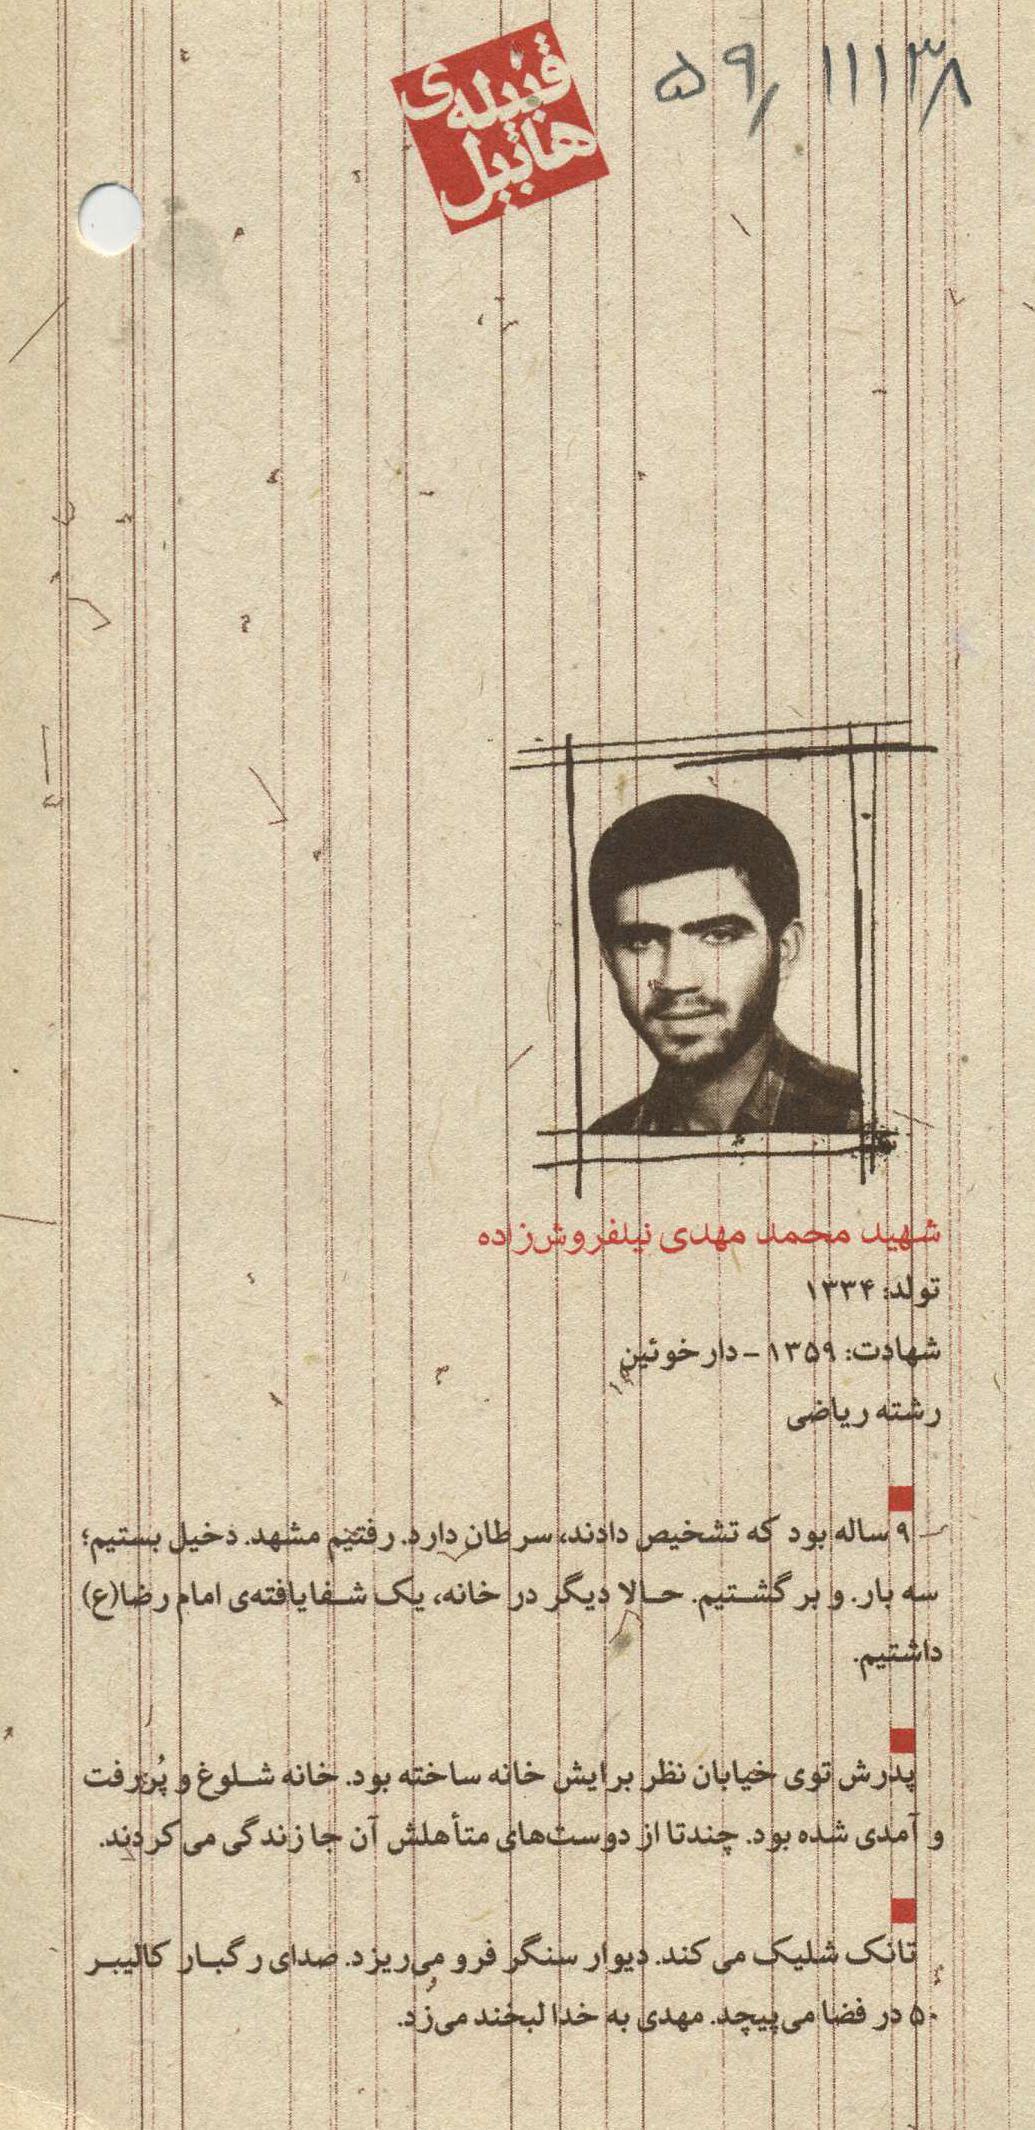 ۵۹/۱۱۱۳۸
قبیله‌ی
هابیل
شهید محمد مهدی نیلفروش‌زاده
تولد: ۱۳۳۴
شهادت: ۱۳۵۹ - دارخوئین
رشته ریاضی
۹ ساله بود که تشخیص دادند، سرطان دارد. رفتیم مشهد. دخیل بستیم؛
سه بار. و برگشتیم. حالا دیگر در خانه، یک شفایافته‌ی امام رضا(ع)
داشتیم.
پدرش توی خیابان نظر برایش خانه ساخته بود. خانه شلوغ و پُررفت
و آمدی شده بود. چندتا از دوست‌های متأهلش آن جا زندگی می‌کردند.
تانک شلیک می‌کند. دیوار سنگر فرو می‌ریزد. صدای رگبار کالیبر
۵۰ در فضا می‌پیچد. مهدی به خدا لبخند می‌زد.